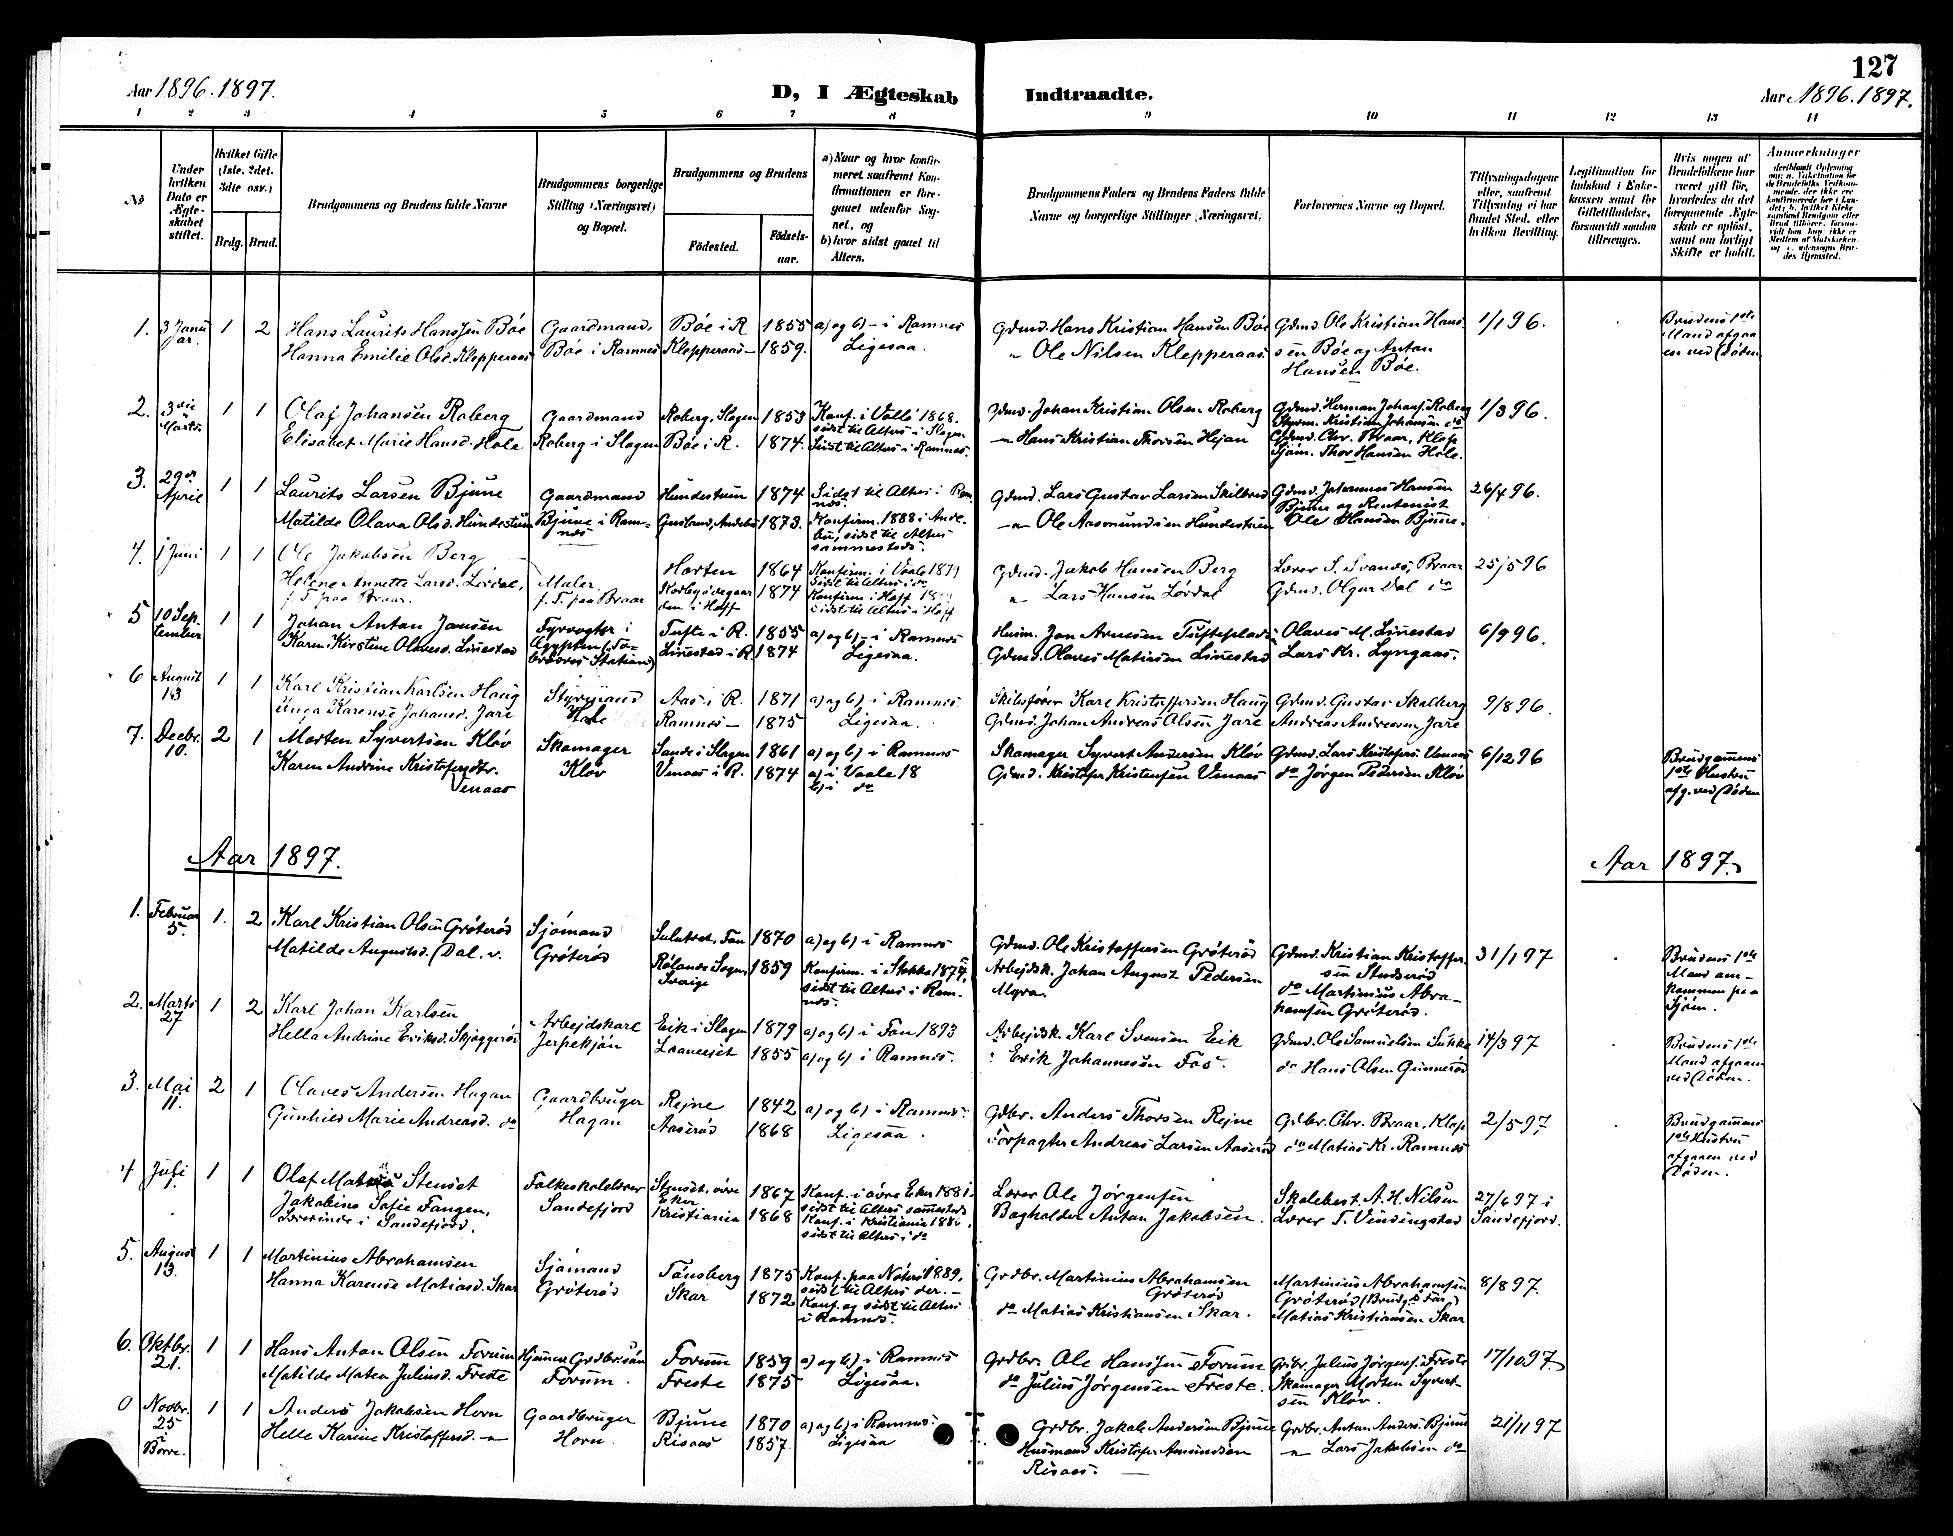 127
Aar 1896. 1897.
D, I Ægteskab Indtraadte.
Aar 1896. 1897.
1 2 3 4 5 6 7 8 9 10 11 12 13 14
No
Under hvilken Dato er Ægteskabet stiftet.
Hvilket Gifte (1ste, 2det, 3die osv.)
Brdg. Brud.
Brudgommens og Brudens fulde Navne
Brudgommens borgerlige Stilling (Næringsvei) og Bopæl.
Brudgommens og Brudens
Fødested.
Fødselsaar.
a) Naar og hvor konfirmeret samt Konfirmationen er foregaaet udenfor Sognet, og
b) hvor sidst gaaet til Alters.
Brudgommens Faders og Brudens Faders fulde Navne og borgerlige Stillinger (Næringsvei).
Forlovernes Navne og Bopæl.
Tillysningsdagene eller, saafremt Tillysning ei har fundet Sted, efter hvilken Bevilling.
Legitimation for Indskud i Enkekassen samt for Giftetilladelse, forsaavidt saadan tiltrænges.
Hvis nogen af Brudefolkene har været gift før, hvorledes da det foregaaende Ægteskab er opløst, samt om lovligt Skifte er holdt.
Anmærkninger
1. 3 Januar. 1 2 Hans Laurits Hanssen Bøe Gaardmand, Bøe i R 1855 a) og b) - i Ramnes Gdmd. Hans Kristian Hansen Bøe Gdmd. Ole Kristian Han- 1/1 96. Brudens 1ste
Hanna Emilie Olsd. Klopperaas Bøe i Ramnes Klopperaas - 1859. Ligesaa. " Ole Nilsen Klepperaas. sen Bøe og Anton Mand afgaa-
Hansen Bøe. en ved Døden
2. 3die Marts. 1 1 Olaf Johansen Roberg Gaardmand Roberg, Slagen 1853 Konf. i Vallø 1868. Gdmd. Johan Kristian Olsen Roberg Gdmd. Herman Johans. Roberg 1/3 96.
sidst til Alters i Slagen. Styrm. Kristian Johansen do
Elisabet Marie Hansd. Hole Roberg i Slagen Bøe i R. 1874. Sidst til Alters i Ramnes. " Hans Kristian Thorsen Gdmd. Chr. Braar, Klop
Sjøm. Thor Hansen Hole.
3. 29de April 1 1 Laurits Larsen Bjune Gaardmand Hundestuen 1874 Sidst til Alters i Ram- Gdmd. Lars Gustav Larsen Gdmd. Johannes Hansen 26/4 96.
nes. Bjune og Rentenist
Matilde Olava Olsd. Hundestuen Bjune i Ram- Andebu 1873. Konfirm. 1888 i Ande- " Ole Aasmundsen Hundestuen Ole Hansen Bjune.
nes bu, sidst til Alters
sammesteds.
4. 1 Juni 1 1 Ole Jakobsen Berg Horten 1864 Konfirm. i Vaale Gdmd. Jakob Hansen Berg Lærer S. Svanøs, Braar 25/5 96
Helene Annette Larsd. Lørdal, Maler, 1874 Sidst til Alters i do " Lars Hansen Lørdal Gdmd. Olgar Dal i do
f. T. paa Braar. f. T. paa Braar i Hoff Konfirm. i Hoff
Sidst til Alters i Hoff
5 10 September 1 1 Johan Anton Jansen Fyrvogter i Tufte i R. 1855 a) og b) - i Ramnes Husm. Jan Arnesen Olaves M. Linestad 6/9 96.
Karen Kirstine Olavesd. Linestad Ægypten Linestad i R. 1874 Ligesaa. Gdmd. Olaves Matiasen Linestad Lars Kr. Lyngaas.
Station)
6 August 13 1 1 Karl Kristian Karlsen Haug Styrmand Aas i R. 1871 a) og b) i Ramnes Skibsfører Karl Kristoffersen Haug Gdmd. Gustav Skalberg 9/8 96.
Inga Karense Johansd. Jare Ramnes - 1875 Ligesaa. Gdmd. Johan Andreas Olsen Jare Andreas Andreassen Jare
7. Decbr. 10. 2 1 Morten Syvertsen Kløv Skomager Sande i Slagen 1861 a) og b) i Ramnes Skomager Syvert Andersen Kløv Gdmd. Lars Kristofers. Venaas 6/12 96 Brudgommens
Karen Andrine Kristofersdtr. Kløv Venaas i R. 1874 a) i Vaale 18 Gdmd. Kristofer Kristensen Venaas do Jørgen Pedersen Kløv 1ste Hustru
Venaas b) i do afg. ved Døden
Aar 1897. Aar 1897.
1. Februar 5. 1. 2 Karl Kristian Olsen Grøterød Sjømand 1870 a) og b) i Ramnes Gdmd. Ole Kristoffersen Grøterød Gdmd. Kristian Kristoffer- 31/1 97 Brudens 1ste
Matilde Augustsd. Dal. v. Grøterød 1859 Konfirm. i Stokke 1874, Arbejdsk. Johan August Pedersen sen Mand om-
Sverige sidst til Alters i Ram- Myra. do Martinius Abra- kommen paa
nes. hamsen Grøterød. Sjøen.
2. Marts 27 1 2 Karl Johan Karlsen Arbejdskarl Eik i Slagen 1879 a) og b) i Fon 1893 Arbejdsk. Karl Svensen Eik Gdmd. Ole Samuelsen Sukke 14/3 97 Brudens 1ste
Hella Andrine Eriksd. 1855 a) og b) i Ramnes. " Erik Johannesen Fos. do Hans Olsen Gunnerød Mand afgaaen
ved Døden.
3. Mai 11. 2 1 Olaves Andersen Hagan Gaardbruger Rejne 1842 a) og b) i Ramnes. Gdbr. Anders Thorsen Rejne Grdbr. Chr. Braar, Klop 2/5 97 Brudgommens
Gunhild Marie Andreasd. do Hagan Aaserød 1868 Ligesaa. Forpagter Andreas Larsen Aaserød do Matias Kr. Ramnes 1ste Hustru
afgaaen ved
Døden.
4 Juli 1 1 Olaf Stenset Folkeskolelærer Stenset, øvre 1867 Konf. i øvre Eker 1881 Lærer Ole Jørgensen Skolebest. A. H. Nilsen 27/6 97 i
Jakobine Sofie Fangen, Sandefjord Eker sidst til Alters sammesteds Bogholder Anton Jakobsen. Lærer T. Vindingstad Sandefjord.
Lærerinde i Sandefjord. Kristiania 1868 Konf. i Kristiania 1886,
sidst til Alters i do
5. August 13. 1 1 Martinius Abrahamsen Sjømand Tønsberg 1875 Konf. paa Nøterø 1889. Grdbr. Martinius Abrahamsen Martinius Abrahamsen 8/8 97.
Hanna Karense Matiasd. Skar Grøterød Skar 1872 sidst til Alters der. - Grøterød Grøterød (Brudg.s Far)
Konf. og sidst til Alters do Matias Kristiansen Skar. Matias Kristiansen Skar
i Ramnes.
6. Oktbr. 21. 1 1 Hans Anton Olsen Forum Hjemmev. Grdbr.søn Forum 1859 a) og b) i Ramnes Grdbr. Ole Hanssen Forum Grdbr. Julius Jørgens. Freste 17/10 97
Matilde Matea Juliusd. Freste Forum. Freste 1875 Ligesaa. do Julius Jørgensen Freste. Skomager Morten Syvert-
sen Kløv.
0 Novbr. 25 i Borre. 1 1 Anders Jakobsen Horn Gaardbruger Bjune 1870 a) og b) i Ramnes. Grdbr. Jakob Andersen Bjune Grdbr. Anton Anders. Bjune 21/11 97
Helle Karine Kristoffersd. " Horn. Risaas 1857. Ligesaa Husmand Kristofer Amundsen " Lars Jakobsen do
Risaas.